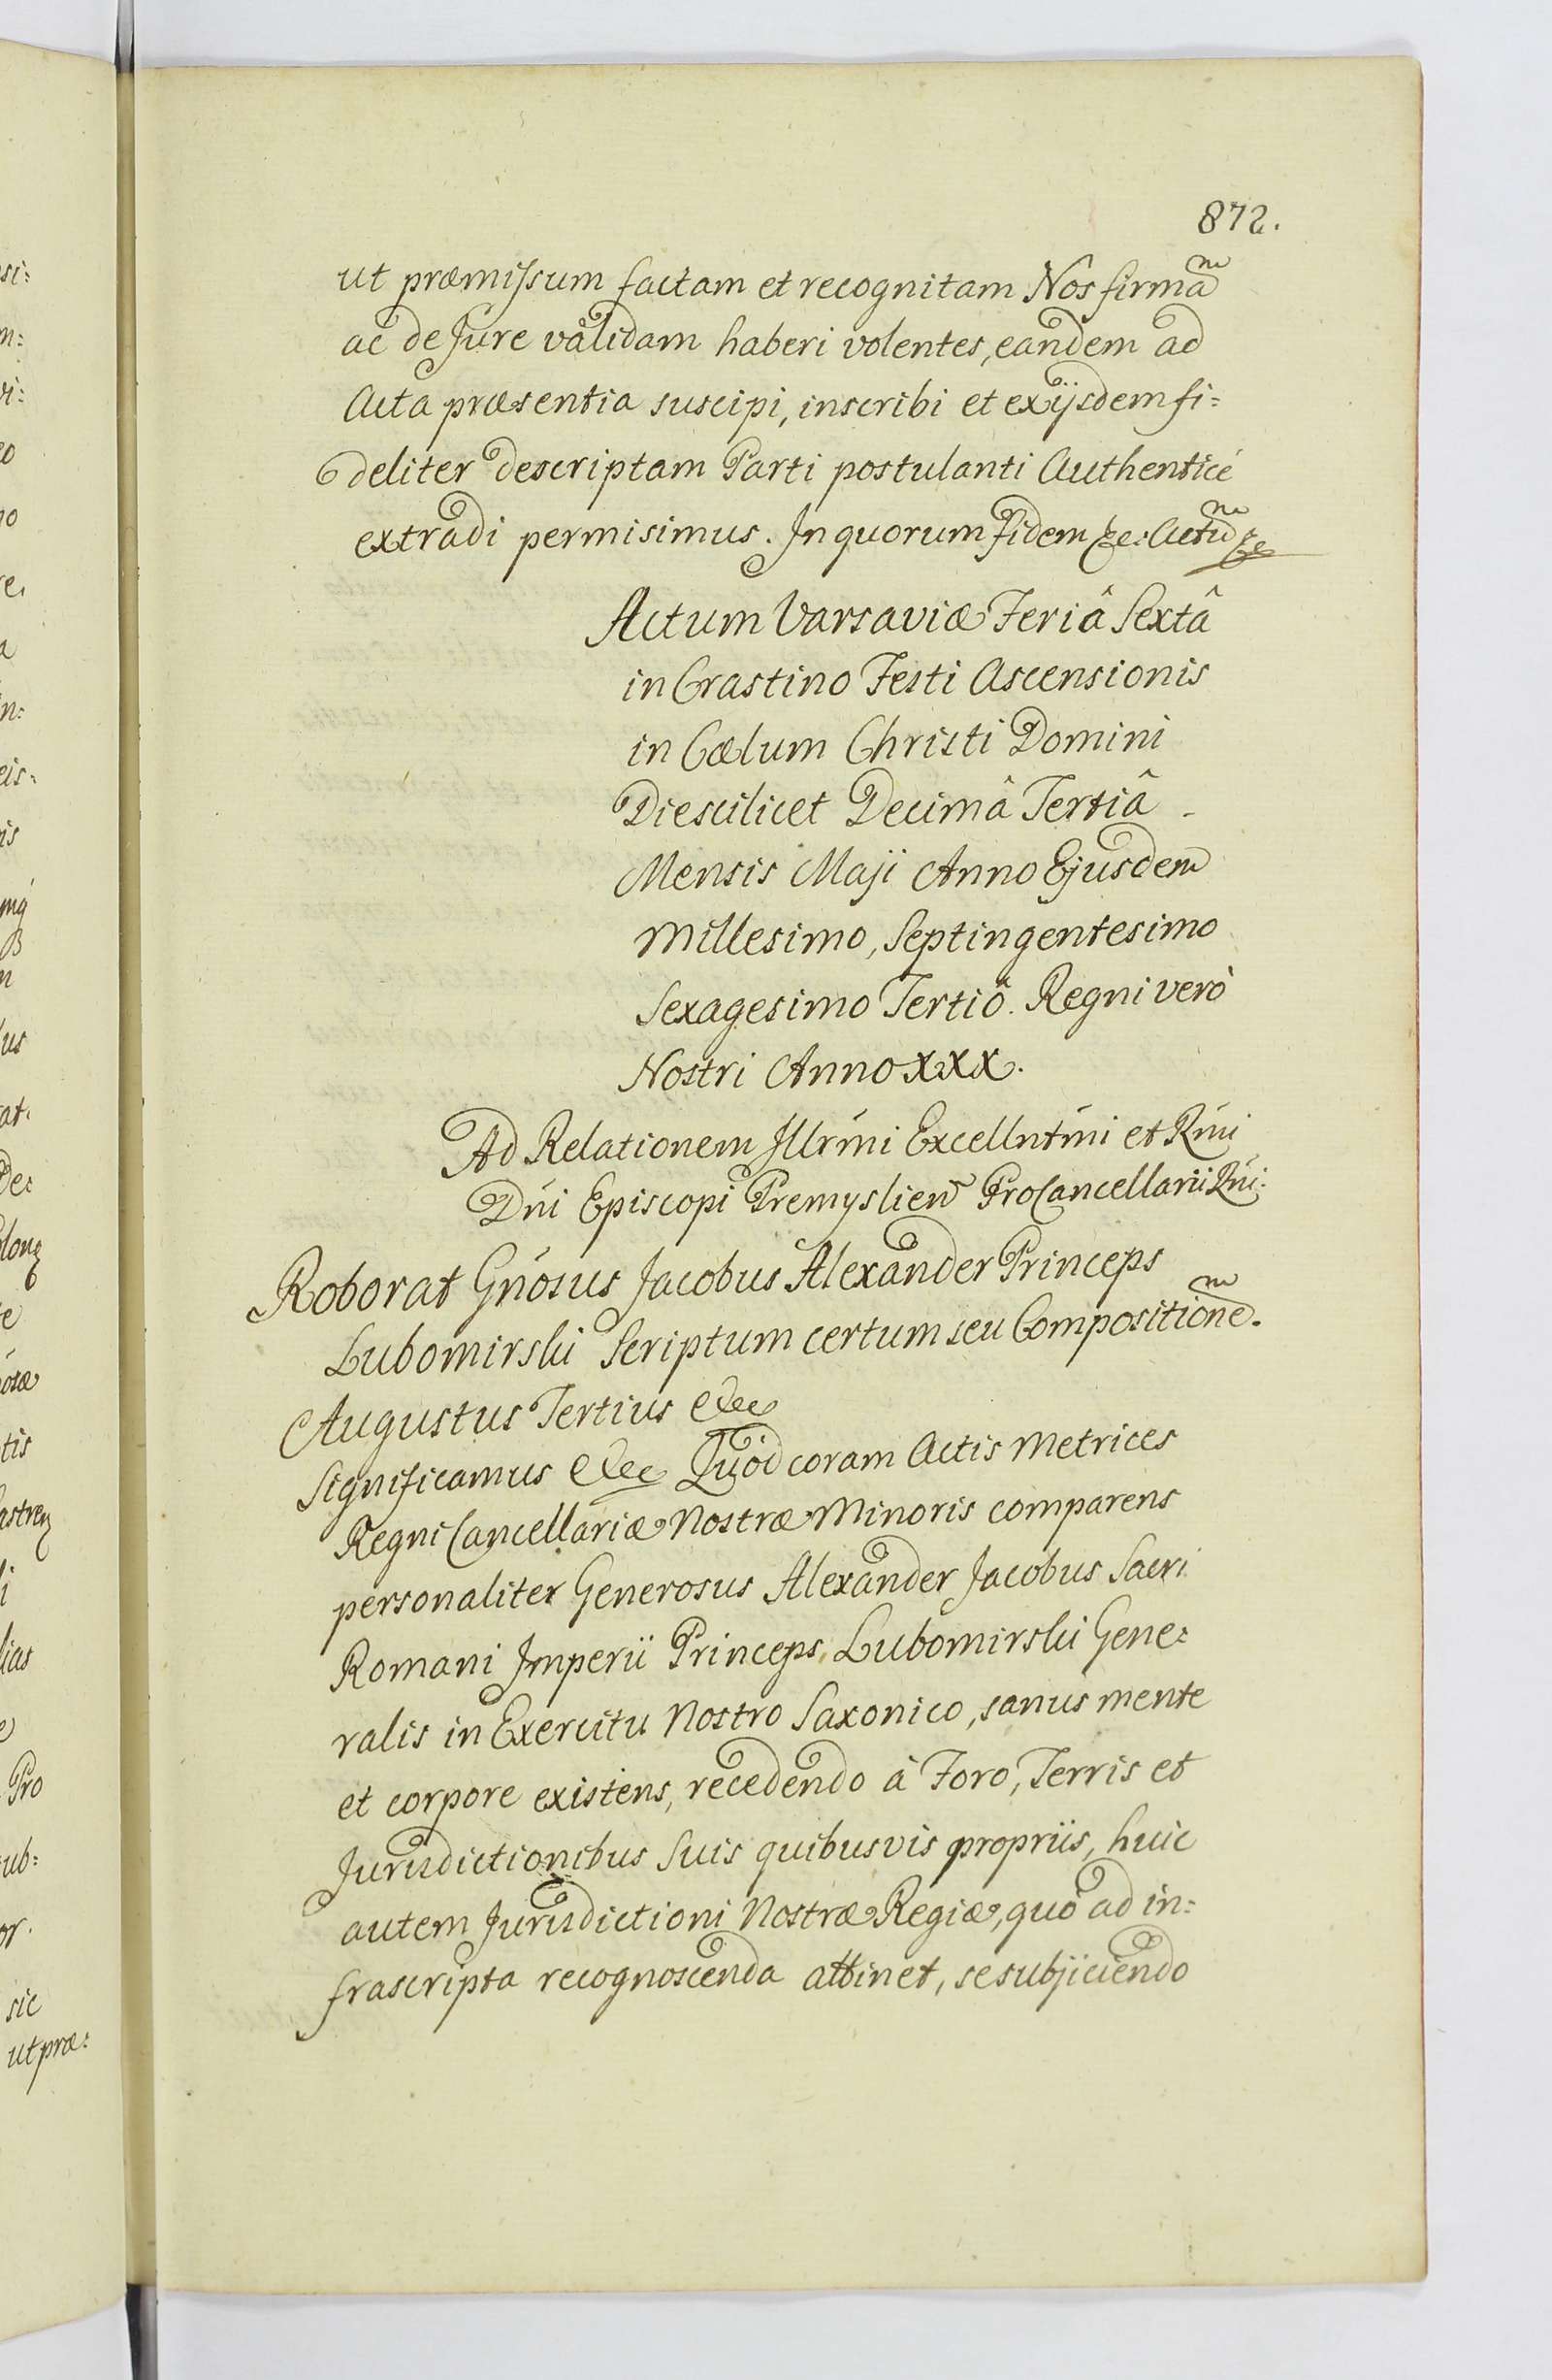 872.
ut præmissum factam et recognitam Nos firmam
ac de Jure validam haberi volentes, eandem ad
Acta præsentia suscipi, inscribi et exijsdem fi=
deliter descriptam Parti postulanti Authenticè
extradi permisimus. In quorum fidem &c: Actum &c
Actum Varsaviæ Feriâ Sextâ
in Crastino Festi Ascensionis
in Cælum Christi Domini
Die scilicet Decimâ Tertiâ
Mensis Maji Anno Ejusdem
Millesimo, Septingentesimo
Sexagesimo Tertiô. Regni verò
Nostri Anno XXX.
Ad Relationem Illrmi Excellntmi et Rmi
Dni Episcopi Premyslien ProCancellarii Rni.
Roborat Gnosus Jacobus Alexander Princeps
Lubomirski Scriptum certum seu Compositionem.
Augustus Tertius &c
Significamus &c Quòd coram Actis Metrices
Regni Cancellariæ Nostræ Minoris comparens
personaliter Generosus Alexander Jacobus Sacri
Romani Imperii Princeps Lubomirski Gene=
ralis in Exercitu Nostro Saxonico, sanus mente
et corpore existens, recedendo à Foro, Terris et
Jurisdictionibus Suis quibusvis propriis, huic
autem Jurisdictioni Nostræ Regiæ, quò ad in=
frascripta recognoscenda attinet, se subjiciendo